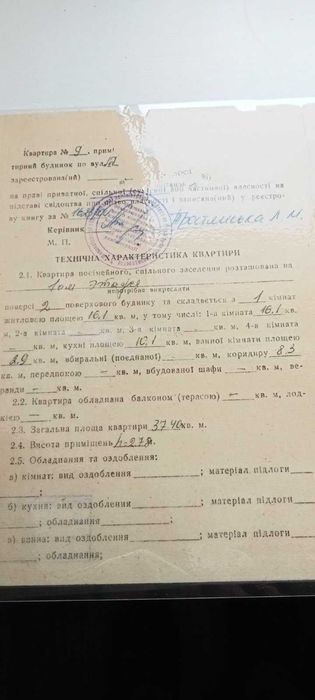 Квартира № 9, прим
тирний будинок по вул.
зареєстрована(ий)
на праві приватної, спільної власності на
підставі свідоцтва про право у реєстро-
ву книгу за №
Керівник
М. П.
ТЕХНІЧНА ХАРАКТЕРИСТИКА КВАРТИРИ
2.1. Квартира посімейного, спільного заселення розташована на
непотрібне викреслити
поверсі 2 поверхового будинку та складається з 1 кімнат
житловою площею 16,1 кв. м, у тому числі: 1-а кімната 16,1 кв.
м, 2-а кімната — кв. м, 3-я кімната — кв. м, 4-а кімната
— кв. м, кухні площею 10,1 кв. м, ванної кімнати площею
2,9 кв. м, вбиральні (поєднаної) — кв. м, коридору 8,3
кв. м, передпокою — кв. м, вбудованої шафи — кв. м, ве-
ранди — кв. м.
2.2. Квартира обладнана балконом (терасою) — кв. м, лод-
жією — кв. м.
2.3. Загальна площа квартири 37,40 кв. м.
2.4. Висота приміщень h-2,78.
2.5. Обладнання та оздоблення:
а) кімнат: вид оздоблення ; матеріал підлоги
;
б) кухня: вид оздоблення ; матеріал підлоги
; обладнання ;
в) ванна: вид оздоблення ; матеріал підлоги
; обладнання;